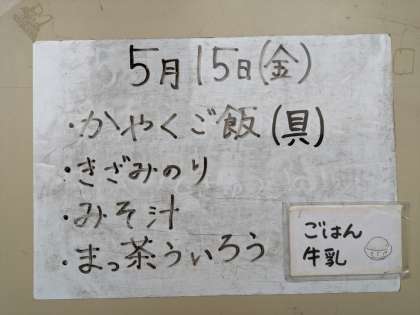 5月15日(金)
・かやくご飯(具)
・きざみのり
・みそ汁
・まっ茶ういろう
ごはん
牛乳